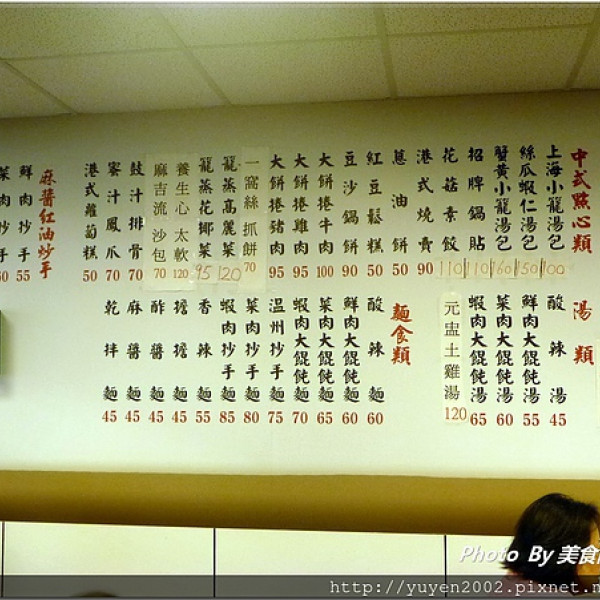 中式點心類
上海小籠湯包 100
絲瓜蝦仁湯包 150
蟹黃小籠湯包 160
招牌鍋貼 110
花菇素餃 110
港式燒賣 90
蔥油餅 50
紅豆鬆糕 50
豆沙鍋餅 90
大餅捲牛肉 100
大餅捲雞肉 95
大餅捲豬肉 95
一窩絲抓餅 70
籠蒸高麗菜 120
籠蒸花椰菜 95
養生心太軟 120
麻吉流沙包 70
豉汁排骨 70
蜜汁鳳爪 70
港式蘿蔔糕 50
麻醬紅油炒手
鮮肉炒手 55
菜肉炒手 60
湯類
酸辣湯 45
鮮肉大餛飩湯 55
菜肉大餛飩湯 60
蝦肉大餛飩湯 65
元盅土雞湯 120
麵食類
酸辣麵 60
鮮肉大餛飩麵 60
菜肉大餛飩麵 65
蝦肉大餛飩麵 70
溫州炒手麵 75
菜肉炒手麵 80
蝦肉炒手麵 85
香辣麵 55
擔擔麵 45
酢醬麵 45
麻醬麵 45
乾拌麵 45
Photo By 美食
http://yuyen2002.pixnet.n